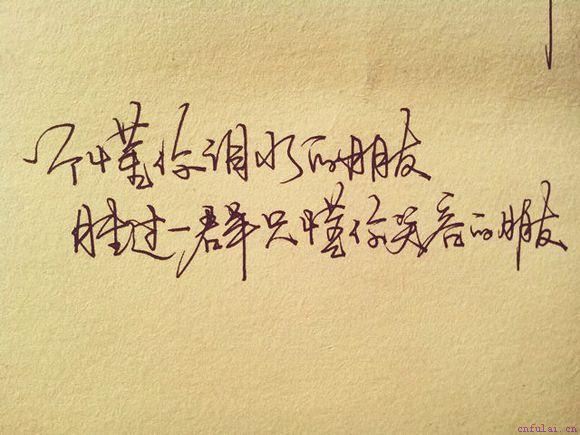 一个懂你泪水的朋友
胜过一群只懂你笑容的朋友
cnfulai.cn